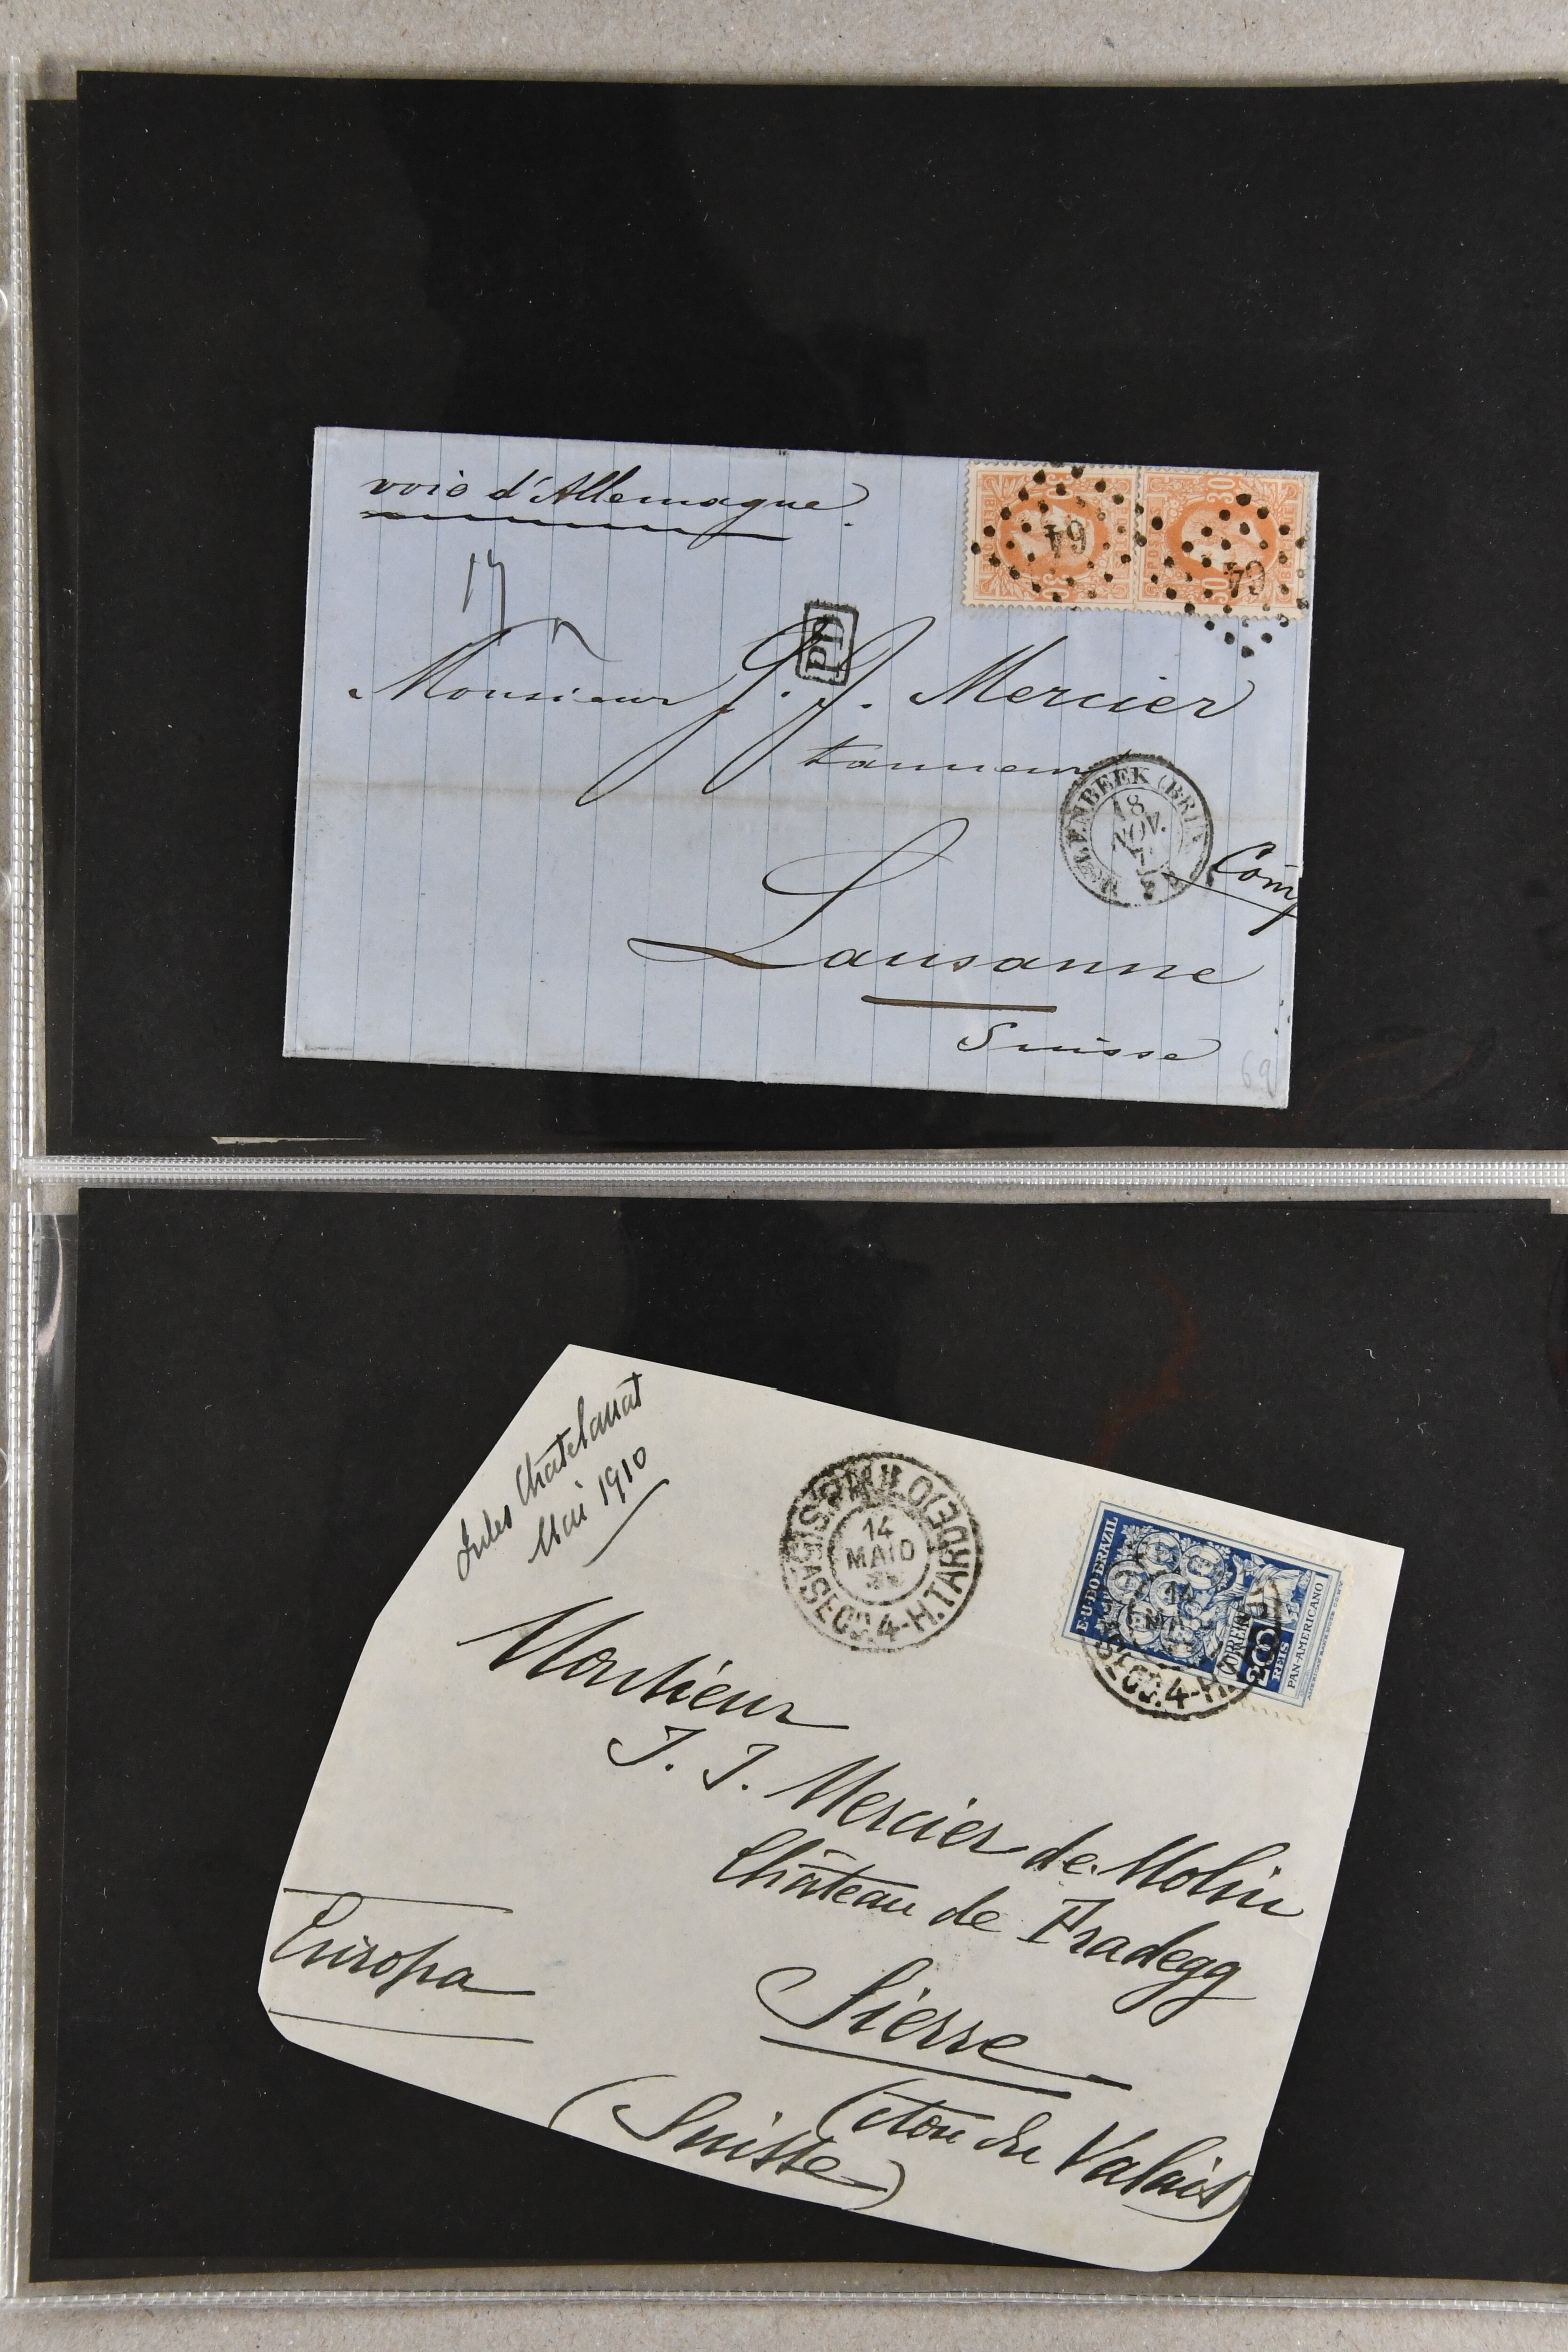 voie d'Allemagne.
30
30
64
64
PD
Monsieur J. J. Mercier
tanneur
18
NOV.
Lausanne
Suisse
69
Jules Chatelanat
Mai 1910
S. PAULO
14
MAIO
5ª SEC. 4-H. TARDE
E. U. DO BRAZIL
CORREIO
200
REIS
PAN-AMERICANO
Monsieur
J. J. Mercier de Molin
Château de Pradegg
Sierre
(cton du Valais)
(Suisse)
Europa